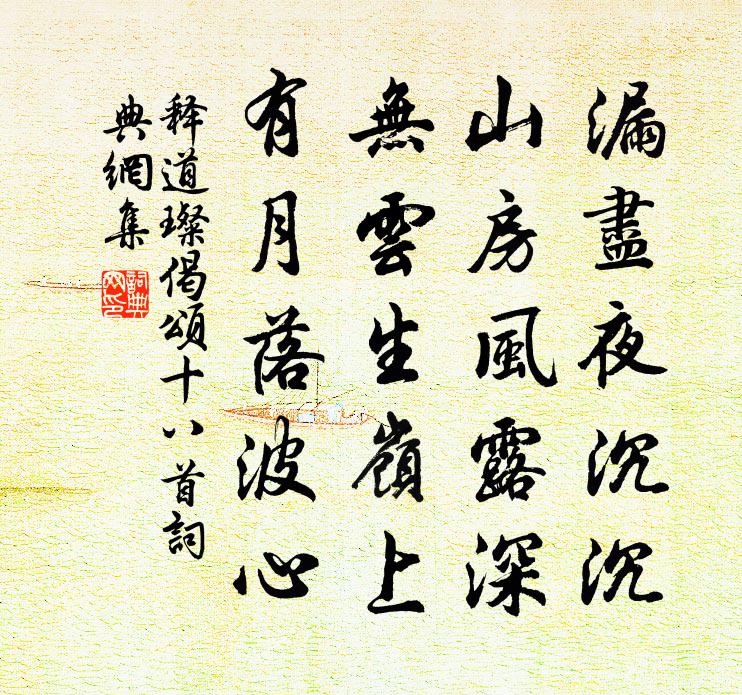 漏盡夜沉沉
山房風露深
無雲生嶺上
有月落波心
释道璨偈頌十八首詞
典網集
詞典
网印